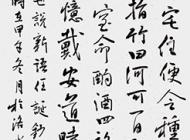 宅住便令種
指竹曰何可一日
室命酌酒四
憶戴安道時
世說新語任誕
冬月於洛